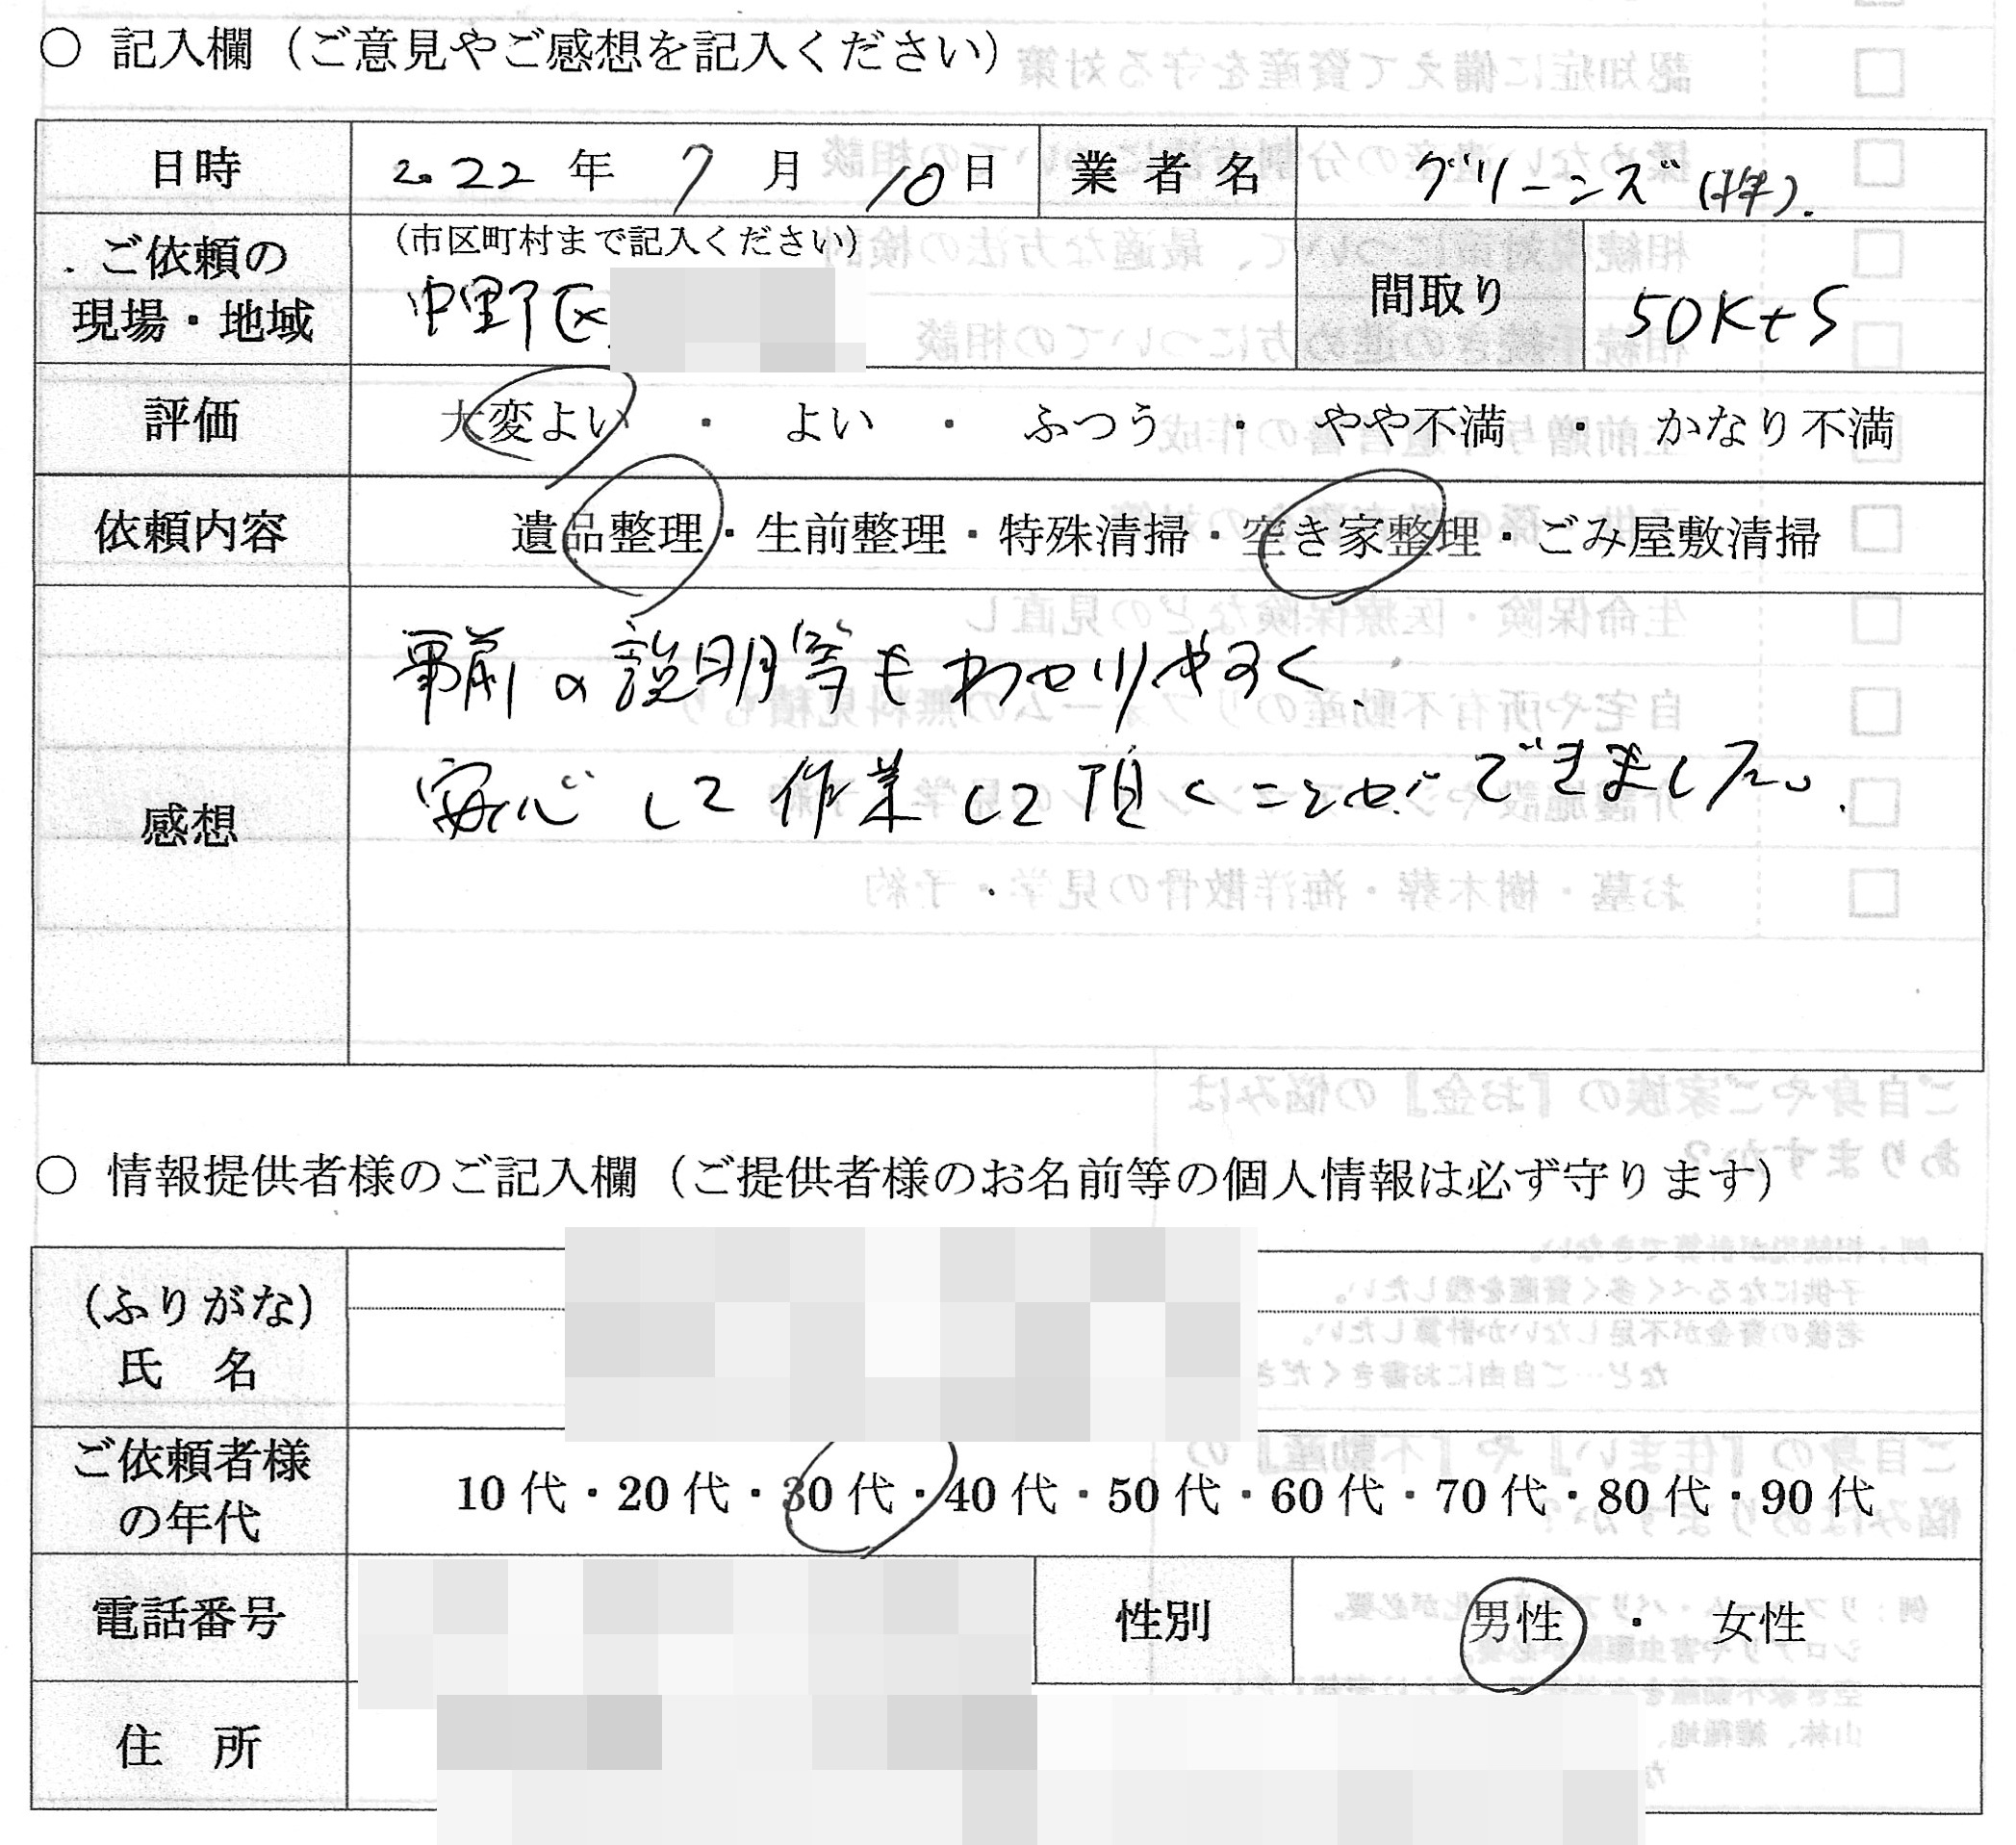 ○ 記入欄（ご意見やご感想を記入ください）
日時 2022年 7月 10日 業者名 グリーンズ(株).
ご依頼の現場・地域 （市区町村まで記入ください） 間取り
中野区 5DK+S
評価 大変よい ・ よい ・ ふつう ・ やや不満 ・ かなり不満
依頼内容 遺品整理・生前整理・特殊清掃・空き家整理・ごみ屋敷清掃
感想
事前の説明等もわかりやすく、
安心して作業して頂くことができました。
○ 情報提供者様のご記入欄（ご提供者様のお名前等の個人情報は必ず守ります）
（ふりがな）
氏 名
ご依頼者様の年代 10代・20代・30代・40代・50代・60代・70代・80代・90代
電話番号 性別 男性 ・ 女性
住 所